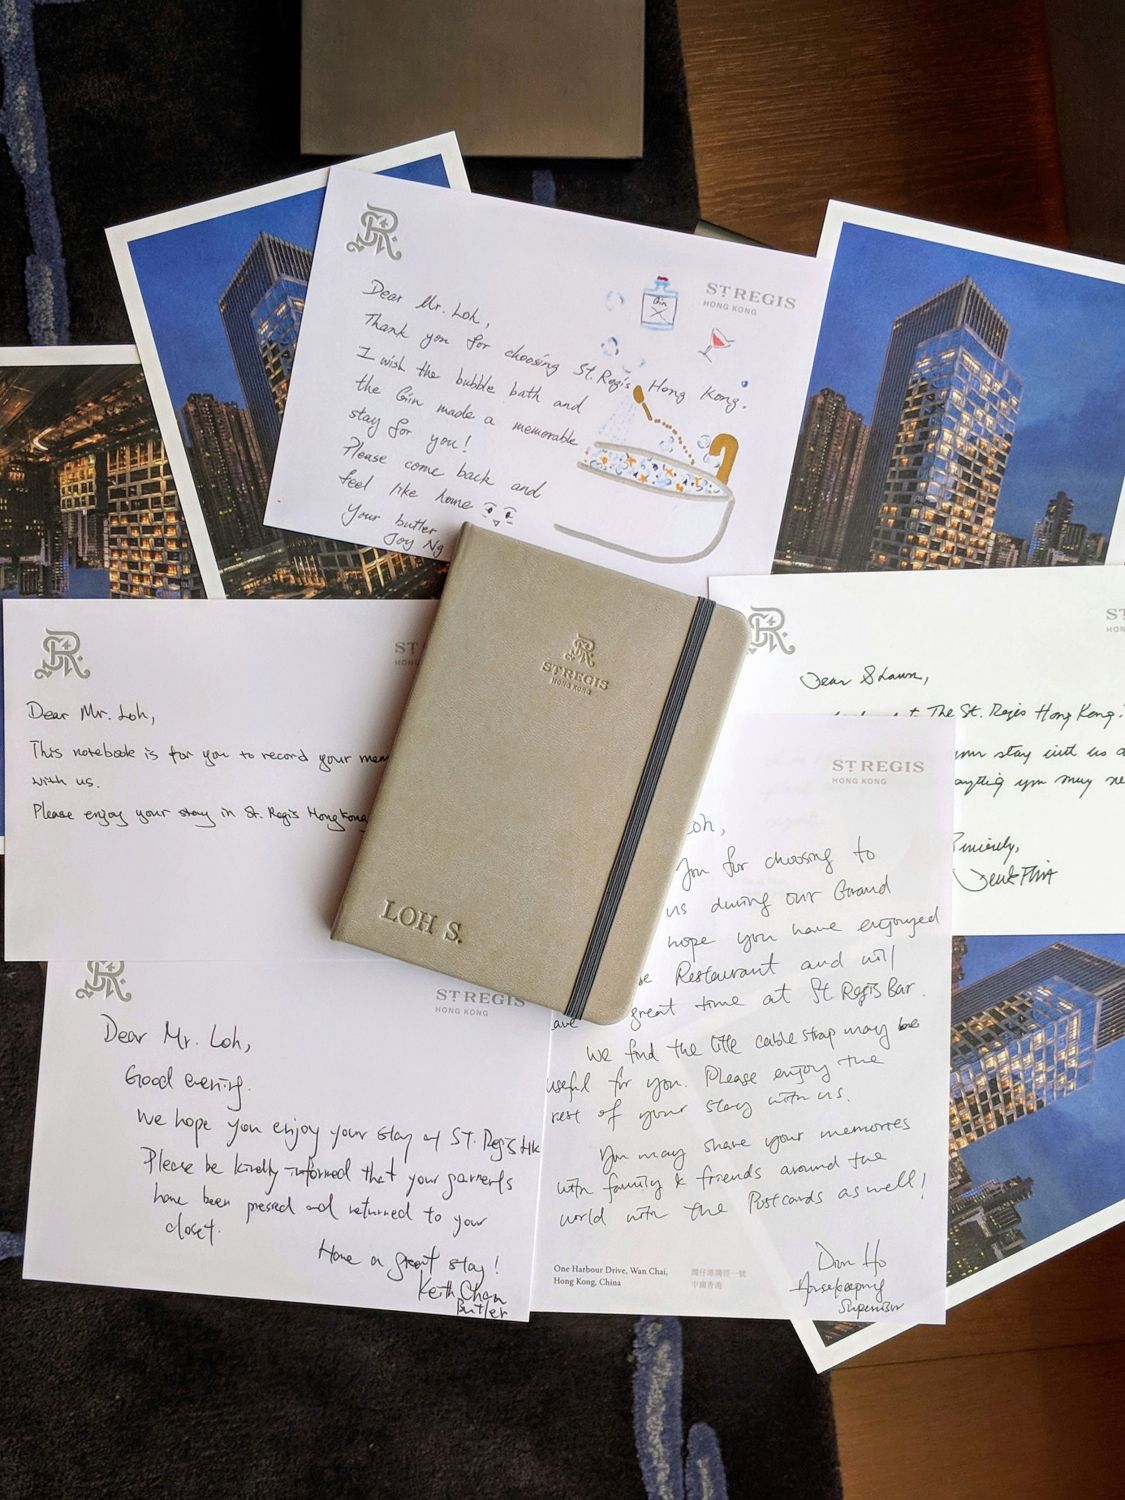 ST REGIS
HONG KONG
Dear Mr. Loh,
Thank you for choosing St. Regis Hong Kong.
I wish the bubble bath and
the Gin made a memorable
stay for you!
Please come back and
feel like home
Your butler
Joy Ng
Gin
ST REGIS
HONG KONG
LOH S.
ST
HONG
Dear Mr. Loh,
This notebook is for you to record your mem
with us.
Please enjoy your stay in St. Regis Hong Kong
ST
HON
Dear Shawn,
The St. Regis Hong Kong!
your stay with us a
anything you may ne
Sincerely,
ST REGIS
HONG KONG
Loh,
you for choosing to
us during our Grand
hope you have enjoyed
Restaurant and will
great time at St Regis Bar.
We find the little cable strap may be
useful for you. Please enjoy the
rest of your stay with us.
You may share your memories
with family & friends around the
world with the Postcards as well!
Housekeeping
Supervisor
One Harbour Drive, Wan Chai,
Hong Kong, China
灣仔港灣徑一號
中國香港
ST REGIS
HONG KONG
Dear Mr. Loh,
Good evening.
We hope you enjoy your stay at ST. Regis HK
Please be kindly informed that your garments
have been pressed and returned to your
closet.
Have a great stay!
Keith Chan
Butler